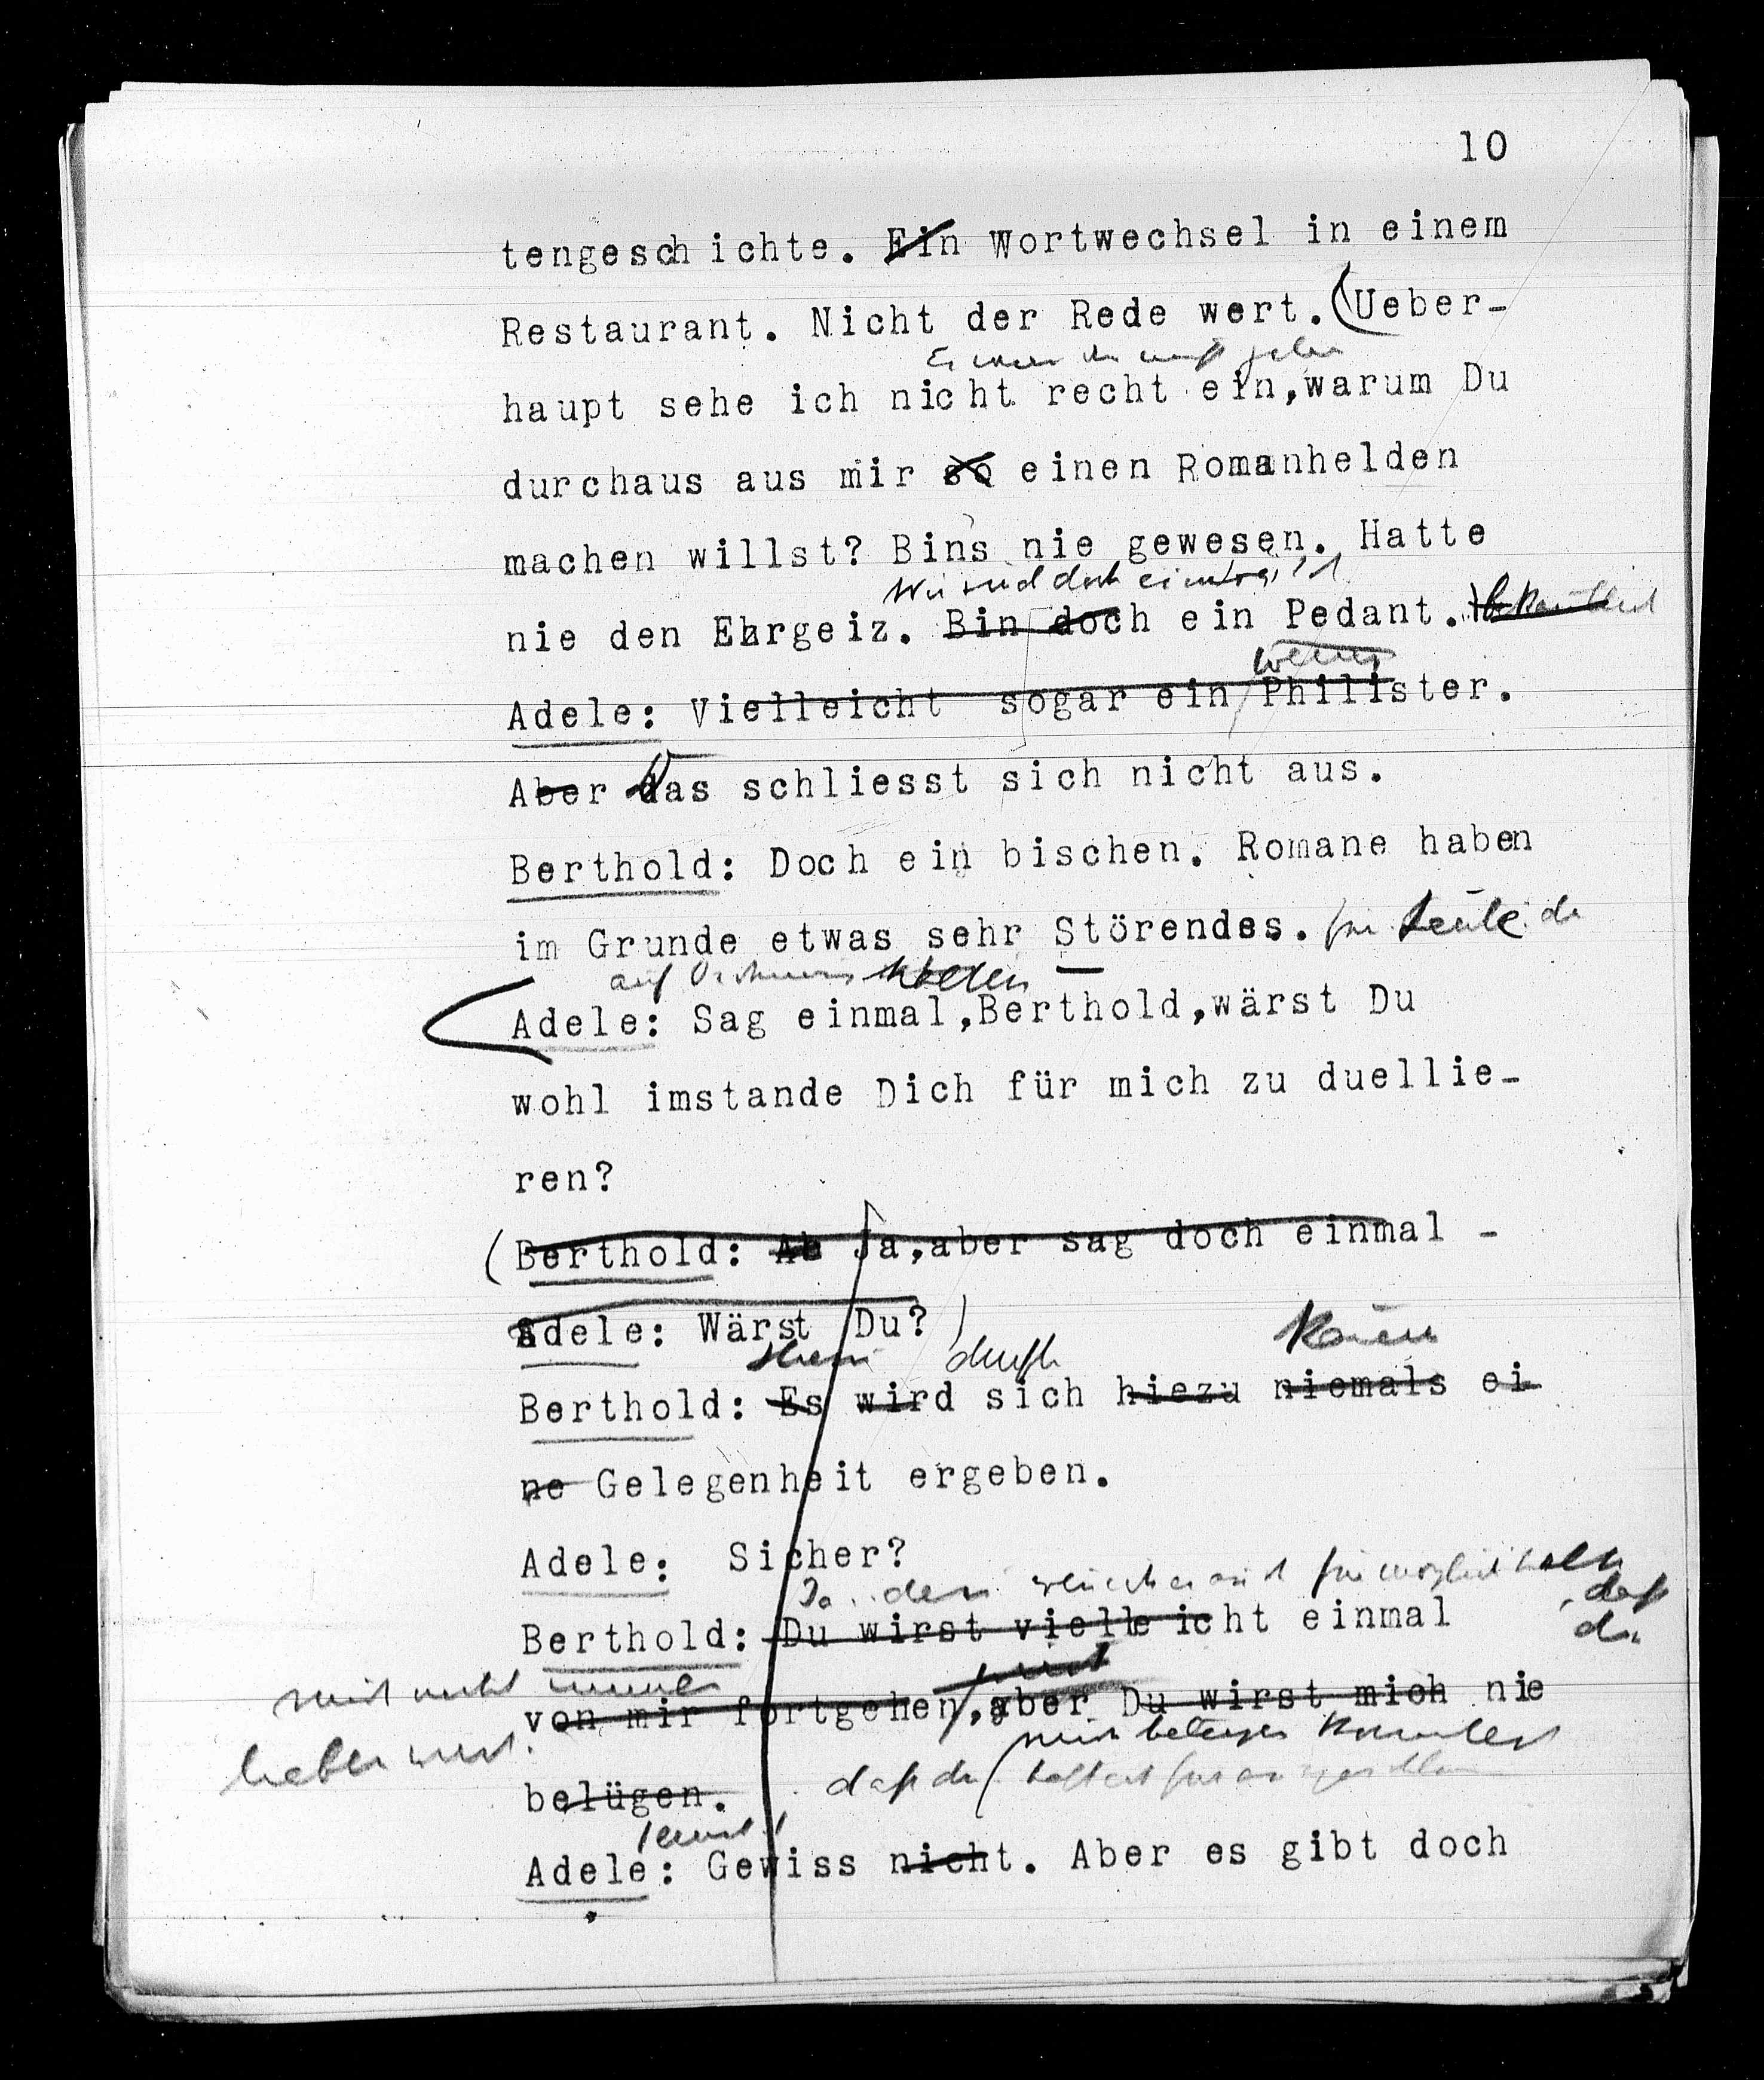 10
tengeschichte. Ein Wortwechsel in einem
Restaurant. Nicht der Rede wert. (Ueber-
haupt sehe ich nicht recht ein,warum Du
durchaus aus mir so einen Romanhelden
machen willst? Bins nie gewesen. Hatte
nie den Ehrgeiz. Bin doch ein Pedant.
wenig
Adele: Vielleicht sogar ein Philister.
Aber Das schliesst sich nicht aus.
Berthold: Doch ein bischen. Romane haben
im Grunde etwas sehr Störendes. für Leute die
auf Ordnung halten
Adele: Sag einmal,Berthold,wärst Du
wohl imstande Dich für mich zu duellie-
ren?
(Berthold: Ja,aber sag doch einmal -
Adele: Wärst Du?)
dürfte kaum
Berthold: Es wird sich hiezu niemals ei
ne Gelegenheit ergeben.
Adele: Sicher?
für möglich halten
, daß
du
Berthold: Du wirst vielleicht einmal
mich nicht immer
von mir fortgehen,aber Du wirst mich nie
lieber
mich belügen könntest
belügen. daß du
Adele: Gewiss nicht. Aber es gibt doch